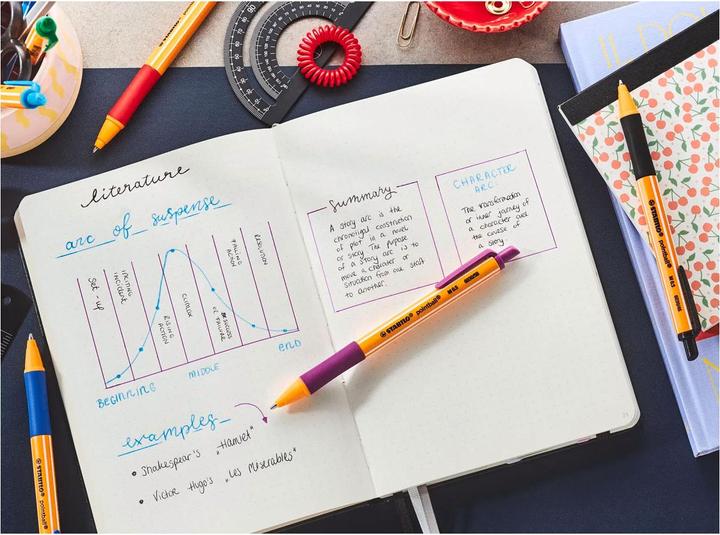 literature
arc of suspense
Set-up
INCITING
incident
RISING
ACTION
CLIMAX
SUCCESS
or FAILURE
FALLING
ACTION
RESOLUTION
BEGINNING
MIDDLE
END
examples
Shakespear's „Hamlet"
Victor Hugo's „Les Miserables"
Summary
A story arc is the
chronolgical construction
of plot in a novel
or story. The purpose
of a story arc is to
move a character or
situation from one state
to another.
CHARACTER
ARC:
The transformation
or inner journey of
a character over
the course of
a story.
STABILO® pointball®
STABILO® pointball®
STABILO® pointball